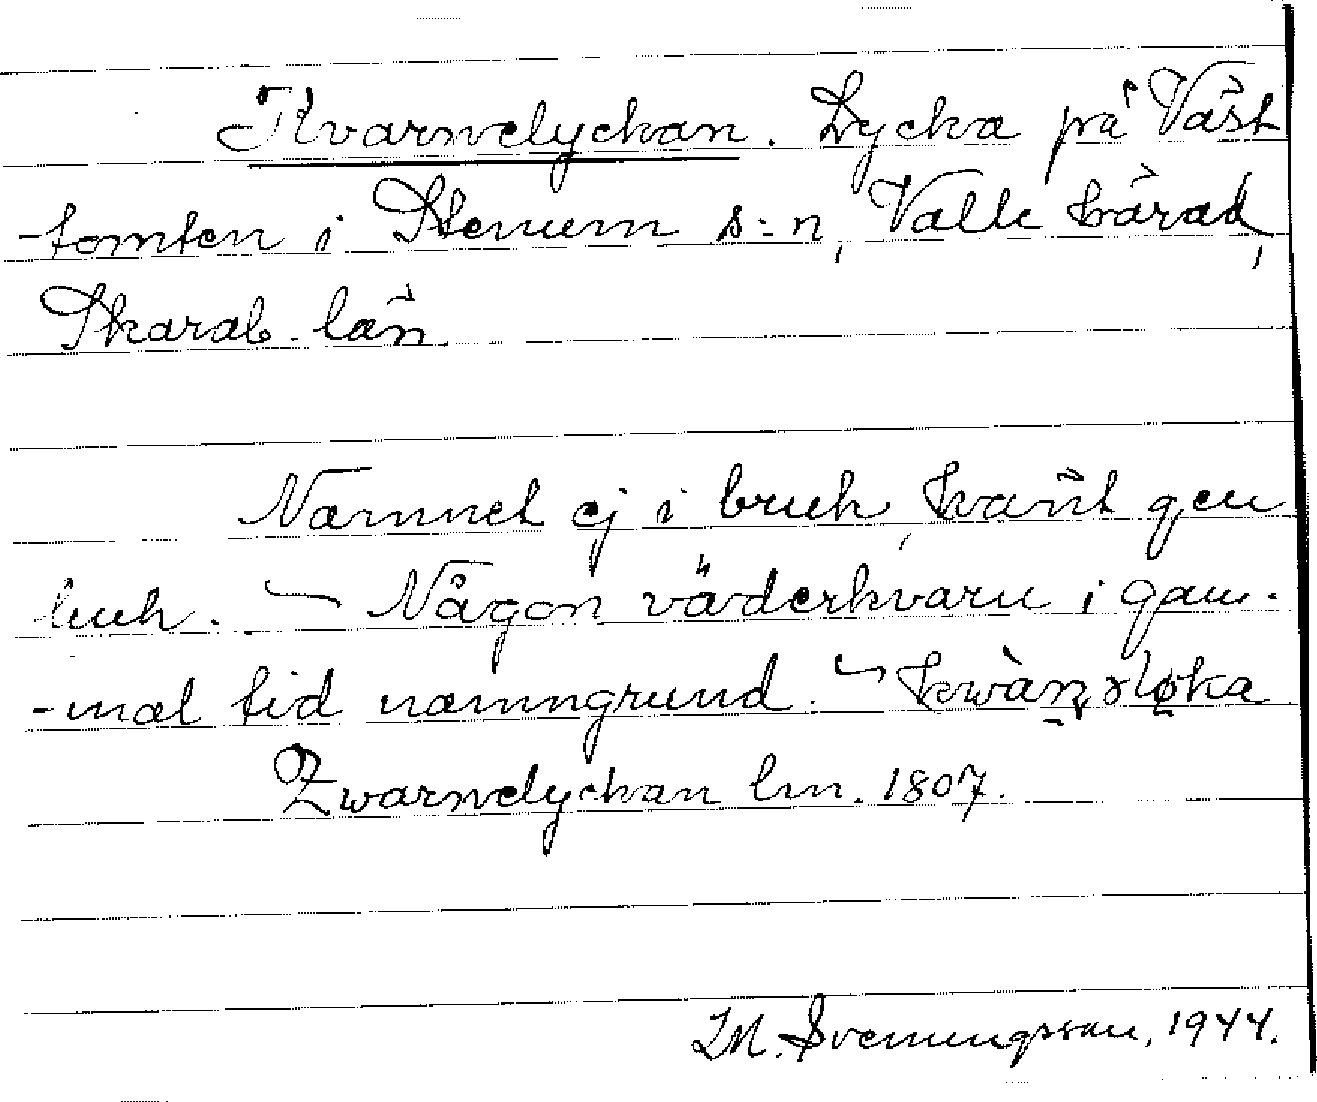 Kvarnelyckan. Lycka på Väst
-tomten i Stenum s:n, Valle härad,
Skarab. län
Namnet ej i bruk, känt gm
luk. — Någon väderkvarn i gam-
-mal tid namngrund. —
Qwarnelyckan lm. 1807.
M. Svenungsson, 1944.